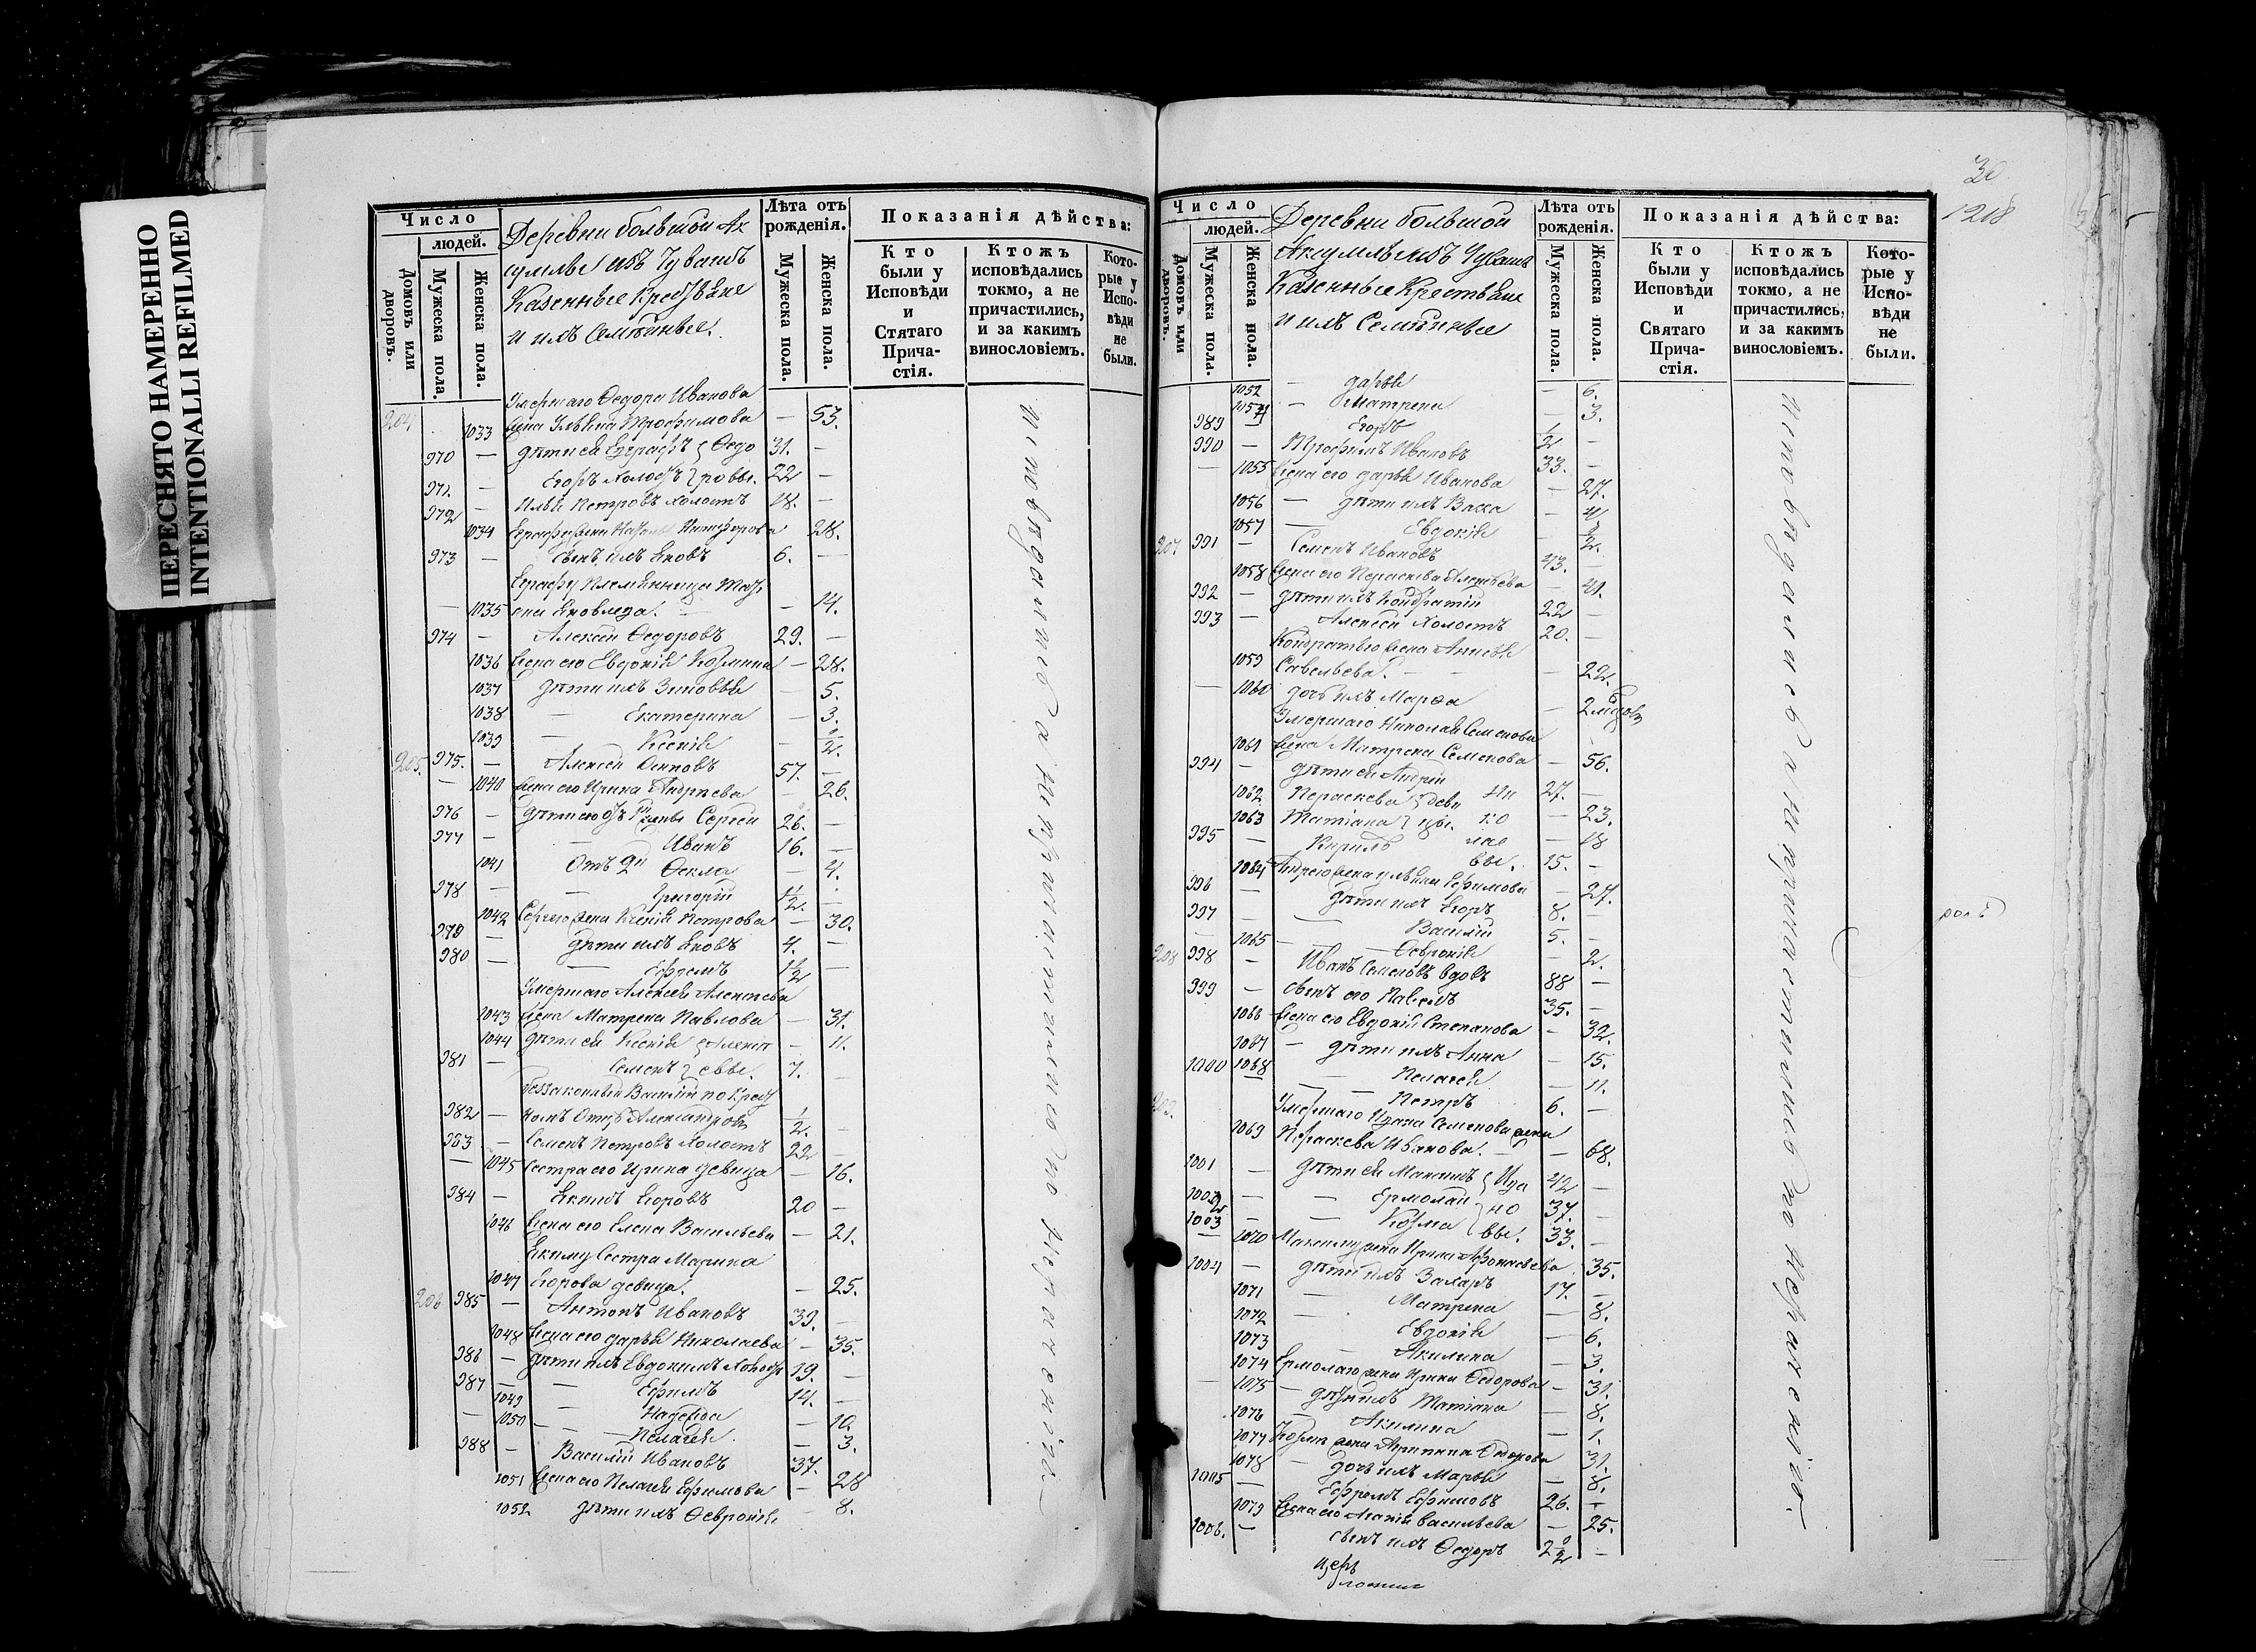 ПЕРЕСНЯТО НАМЕРЕННО
INTENTIONALLI REFILMED
Число
людей.
Домовъ или дворовъ.
Мужеска пола.
Женска пола.
Деревни большой Ак
сумлы изъ Чувашъ
Казенные Крестьяне
и ихъ Семейные.
Лѣта отъ рожденія.
Мужеска пола.
Женска пола.
Показанія дѣйства:
Кто были у Исповѣди и Стятаго Прича-стія.
Ктожъ исповѣдались токмо, а не причастились, и за какимъ винословіемъ.
Кото-рые у Испо-вѣди не были.
204 Умершаго Ѳедора Иванова
1033 жена Ульяна Трофимова — 53.
970 — дѣти ея Еграфъ Ѳедо 31. —
971. — Егоръ Холостъ ровы. 22 —
972 — Илья Петровъ холостъ 18. —
1034 28.
973 — сынъ ихъ Яковъ 6. —
Еграфу Племянница
— 1035 Яковлева. — 14.
974 — Алексѣй Ѳедоровъ 29. —
1036 жена его Евдокія Козмина — 28.
1037 дѣти ихъ Зиновья — 5.
1038 — Екатерина — 3.
1039 — Ксенія — 1/2.
205. 975. — Алексѣй Осиповъ 57. —
— 1040 жена его Ирина Андреева — 26.
976 — Сергѣй 26. —
977 — — Иванъ 16. —
1041 Отъ 2й Ѳекла — 4.
978 — — Григорій 1/2. —
1042 Сергею жена Ксенія Петрова — 30.
979 — дѣти ихъ Яковъ 4. —
980 — — Ефремъ 1 1/2 —
Умершаго Алексѣя Алексѣева
1043 жена Матрена Павлова — 31.
1044 дѣти ея Ксенія Алексѣ — 11.
981 — Семенъ евы. 7. —
Беззаконный Василій по Крест
982 — номъ Отцѣ Александровъ 1/2. —
983 — Семенъ Петровъ холостъ 22 —
— 1045 Сестра его Ирина девица — 16.
984 — Якимъ Егоровъ 20 —
1046 жена его Елена Васильева — 21.
Якиму Сестра Марина
1047 Егорова девица. — 25.
206 985 — Антонъ Ивановъ 39. —
1048 жена его Дарья Николаева — 35.
986 — дѣти ихъ Евдокимъ 19. —
987 — — Ефимъ 14. —
1049 — Надежда — 10.
— 1050 — Пелагея — 3.
988 — Василій Ивановъ 37. —
1051 жена его Пелагея Ефимова — 28
1052 дѣти ихъ Ѳевронія — 8.
Исповѣдались а Непричастились по Нераченію
30
1218
Число
людей.
Домовъ или дворовъ.
Мужеска пола.
Женска пола.
Деревни большой
Аксумлы изъ Чувашъ
Казенные Крестьяне
и ихъ Семейные
Лѣта отъ рожденія.
Мужеска пола.
Женска пола.
Показанія дѣйства:
Кто были у Исповѣди и Святаго Прича-стія.
Ктожъ исповѣдались токмо, а не причастились, и за какимъ винословіемъ.
Кото-рые у Испо-вѣди не были.
1052 — Дарья — 6.
— Матрена — 3.
989 — Егоръ 1/2 —
990 — Трофимъ Ивановъ 33. —
— 1055 жена его Дарья Иванова — 27.
1056 — дѣти ихъ Васса — 4
1057 — Евдокія — 1/2.
207 991 — Семенъ Ивановъ 43. —
1058 жена его Пераскева Алексѣева — 41.
992 — дѣти ихъ Кондратій 22 —
993 — Алексѣй холостъ 20. —
Кондратью жена Анисья
1059 Савельева. — 22.
— 1060 дочь ихъ Марѳа — 2 мѣсецовъ
Умершаго Николая Семенова
1061 жена Матрена Семенова — 56.
994 — дѣти ея Андрей Ни 27. —
1062 Пераскева деви ко — 23.
1063 Татіана цы. лае — 18
995 — Кирилъ вы. 15. —
1064 Андрею жена Ульяна Ефимова — 27.
996 — дѣти ихъ Егоръ 8. —
997 — — Василій 5. —
1065 — Ѳевронія — 2.
208 998 — Иванъ Семеновъ вдовъ 88 —
999 — сынъ его Павелъ 35. —
1066 жена его Евдокія Степанова — 32.
1067 — дѣти ихъ Анна — 15.
1000 1068 — Пелагея — 11.
— Петръ 6. —
209. Умершаго Ивана Семенова жена
1069 Пераскева Иванова. — 68.
1001 — дѣти ея Максимъ Ива 42 —
1002 — — Ермолай но 37. —
1003 — — Козма вы. 33. —
— 1070 Максиму жена Ирина Афонасьева 35.
1004 — дѣти ихъ Захаръ 17. —
1071 — Матрена — 8.
1072 — Евдокія — 6.
1073 — Акилина — 3.
1074 Ермолаю жена Ирина Ѳедорова — 31.
— 1075 — дѣти ихъ Татіана — 8.
1076 — Акилина — 1.
1077 Козмѣ жена Ѳедорова 31.
1078 — дочь ихъ Марья — 8.
1005 — Ефремъ Ефимовъ 26. —
1079 жена его Васильева — 25.
1006. — сынъ ихъ Ѳедоръ 2 1/2 —
Исповѣдались а Непричастились по Нераченію.